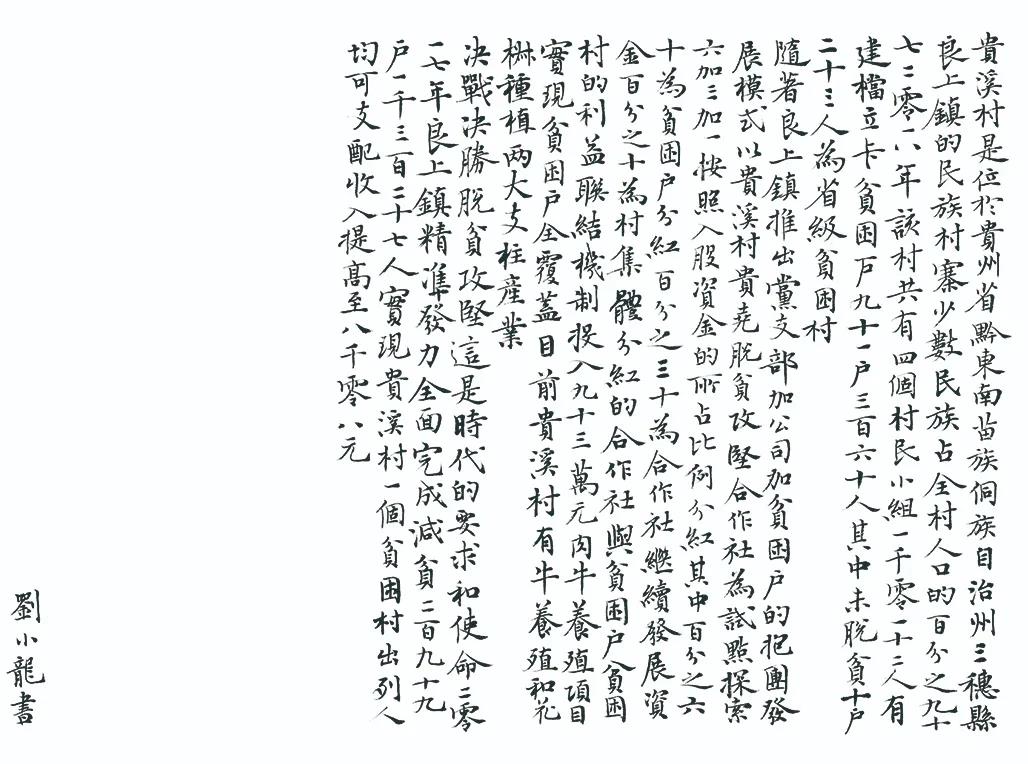 貴溪村是位於貴州省黔東南苗族侗族自治州三穗縣
良上鎮的民族村寨少數民族占全村人口的百分之九十
七二零一八年該村共有四個村民小組一千零一十二人有
建檔立卡貧困户九十一户三百六十人其中未脫貧十户
二十三人為省級貧困村
隨著良上鎮推出黨支部加公司加貧困户的抱團發
展模式以貴溪村貴堯脫貧攻堅合作社為試點探索
六加三加一按照入股資金的所占比例分紅其中百分之六
十為貧困户分紅百分之三十為合作社繼續發展資
金百分之十為村集體分紅的合作社與貧困户貧困
村的利益聯結機制投入九十三萬元肉牛養殖項目
實現貧困户全覆蓋目前貴溪村有牛養殖和花
椒種植两大支柱産業
決戰決勝脫貧攻堅這是時代的要求和使命二零
一七年良上鎮精準發力全面完成減貧二百九十九
户一千三百二十七人實現貴溪村一個貧困村出列人
均可支配收入提髙至八千零八元
劉小龍書